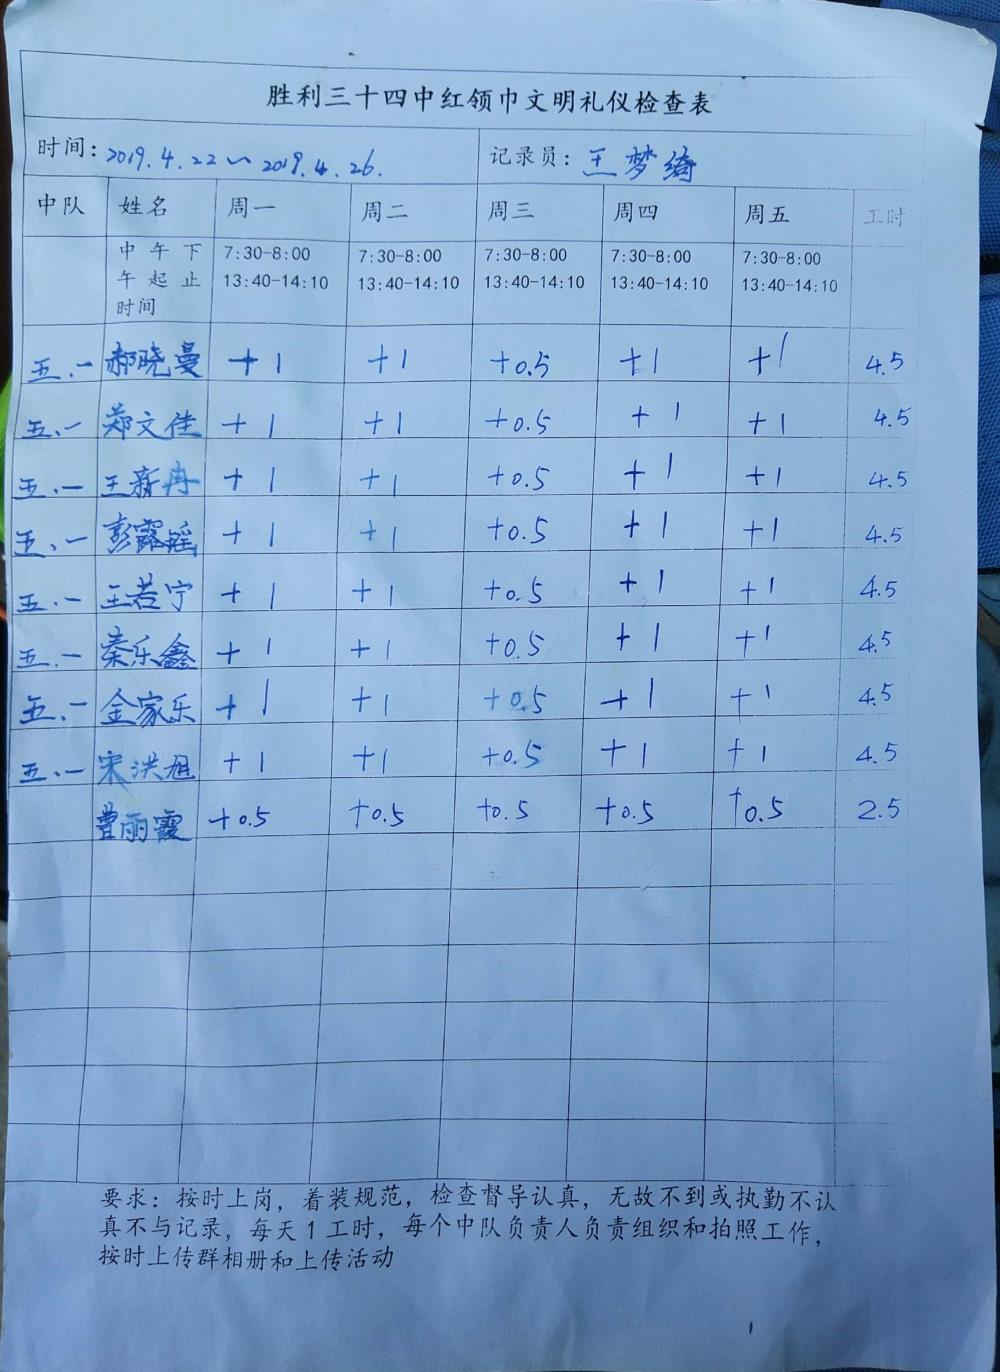 胜利三十四中红领巾文明礼仪检查表
时间：2019.4.22～2019.4.26. 记录员：王梦绮
中队 姓名 周一 周二 周三 周四 周五 工时
中午下 7:30-8:00 7:30-8:00 7:30-8:00 7:30-8:00 7:30-8:00
午起止 13:40-14:10 13:40-14:10 13:40-14:10 13:40-14:10 13:40-14:10
时间
五、一 郝晓曼 +1 +1 +0.5 +1 +1 4.5
五、一 郑文佳 +1 +1 +0.5 +1 +1 4.5
五、一 王新冉 +1 +1 +0.5 +1 +1 4.5
五、一 彭露瑶 +1 +1 +0.5 +1 +1 4.5
五、一 王若宁 +1 +1 +0.5 +1 +1 4.5
五、一 秦乐鑫 +1 +1 +0.5 +1 +1 4.5
五、一 金家乐 +1 +1 +0.5 +1 +1 4.5
五、一 宋洪旭 +1 +1 +0.5 +1 +1 4.5
曹雨霞 +0.5 +0.5 +0.5 +0.5 +0.5 2.5
要求：按时上岗，着装规范，检查督导认真，无故不到或执勤不认
真不与记录，每天1工时，每个中队负责人负责组织和拍照工作，
按时上传群相册和上传活动